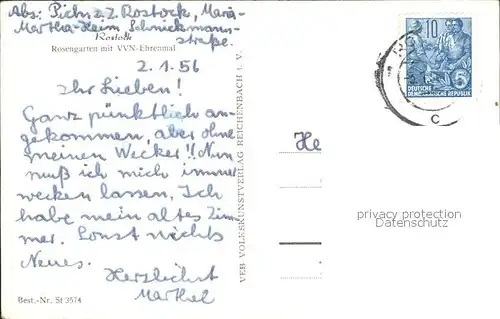 Abs: Pichn z. Z. Rostock, Maria-
Martha-Heim Schnickmann-
straße.
Rostock
Rosengarten mit VVN-Ehrenmal
2.1.56
Ihr Lieben!
Ganz pünktlich an-
gekommen, aber ohne
meinen Wecker!! Nun
muß ich mich immer
wecken lassen. Ich
habe mein altes Zim-
mer. Sonst nichts
Neues.
Herzlichst
Marthel
Best.-Nr. St 3574
VEB VOLKSKUNSTVERLAG REICHENBACH i. V.
10
5
DEUTSCHE
DEMOKRATISCHE REPUBLIK
C
He
privacy protection
Datenschutz